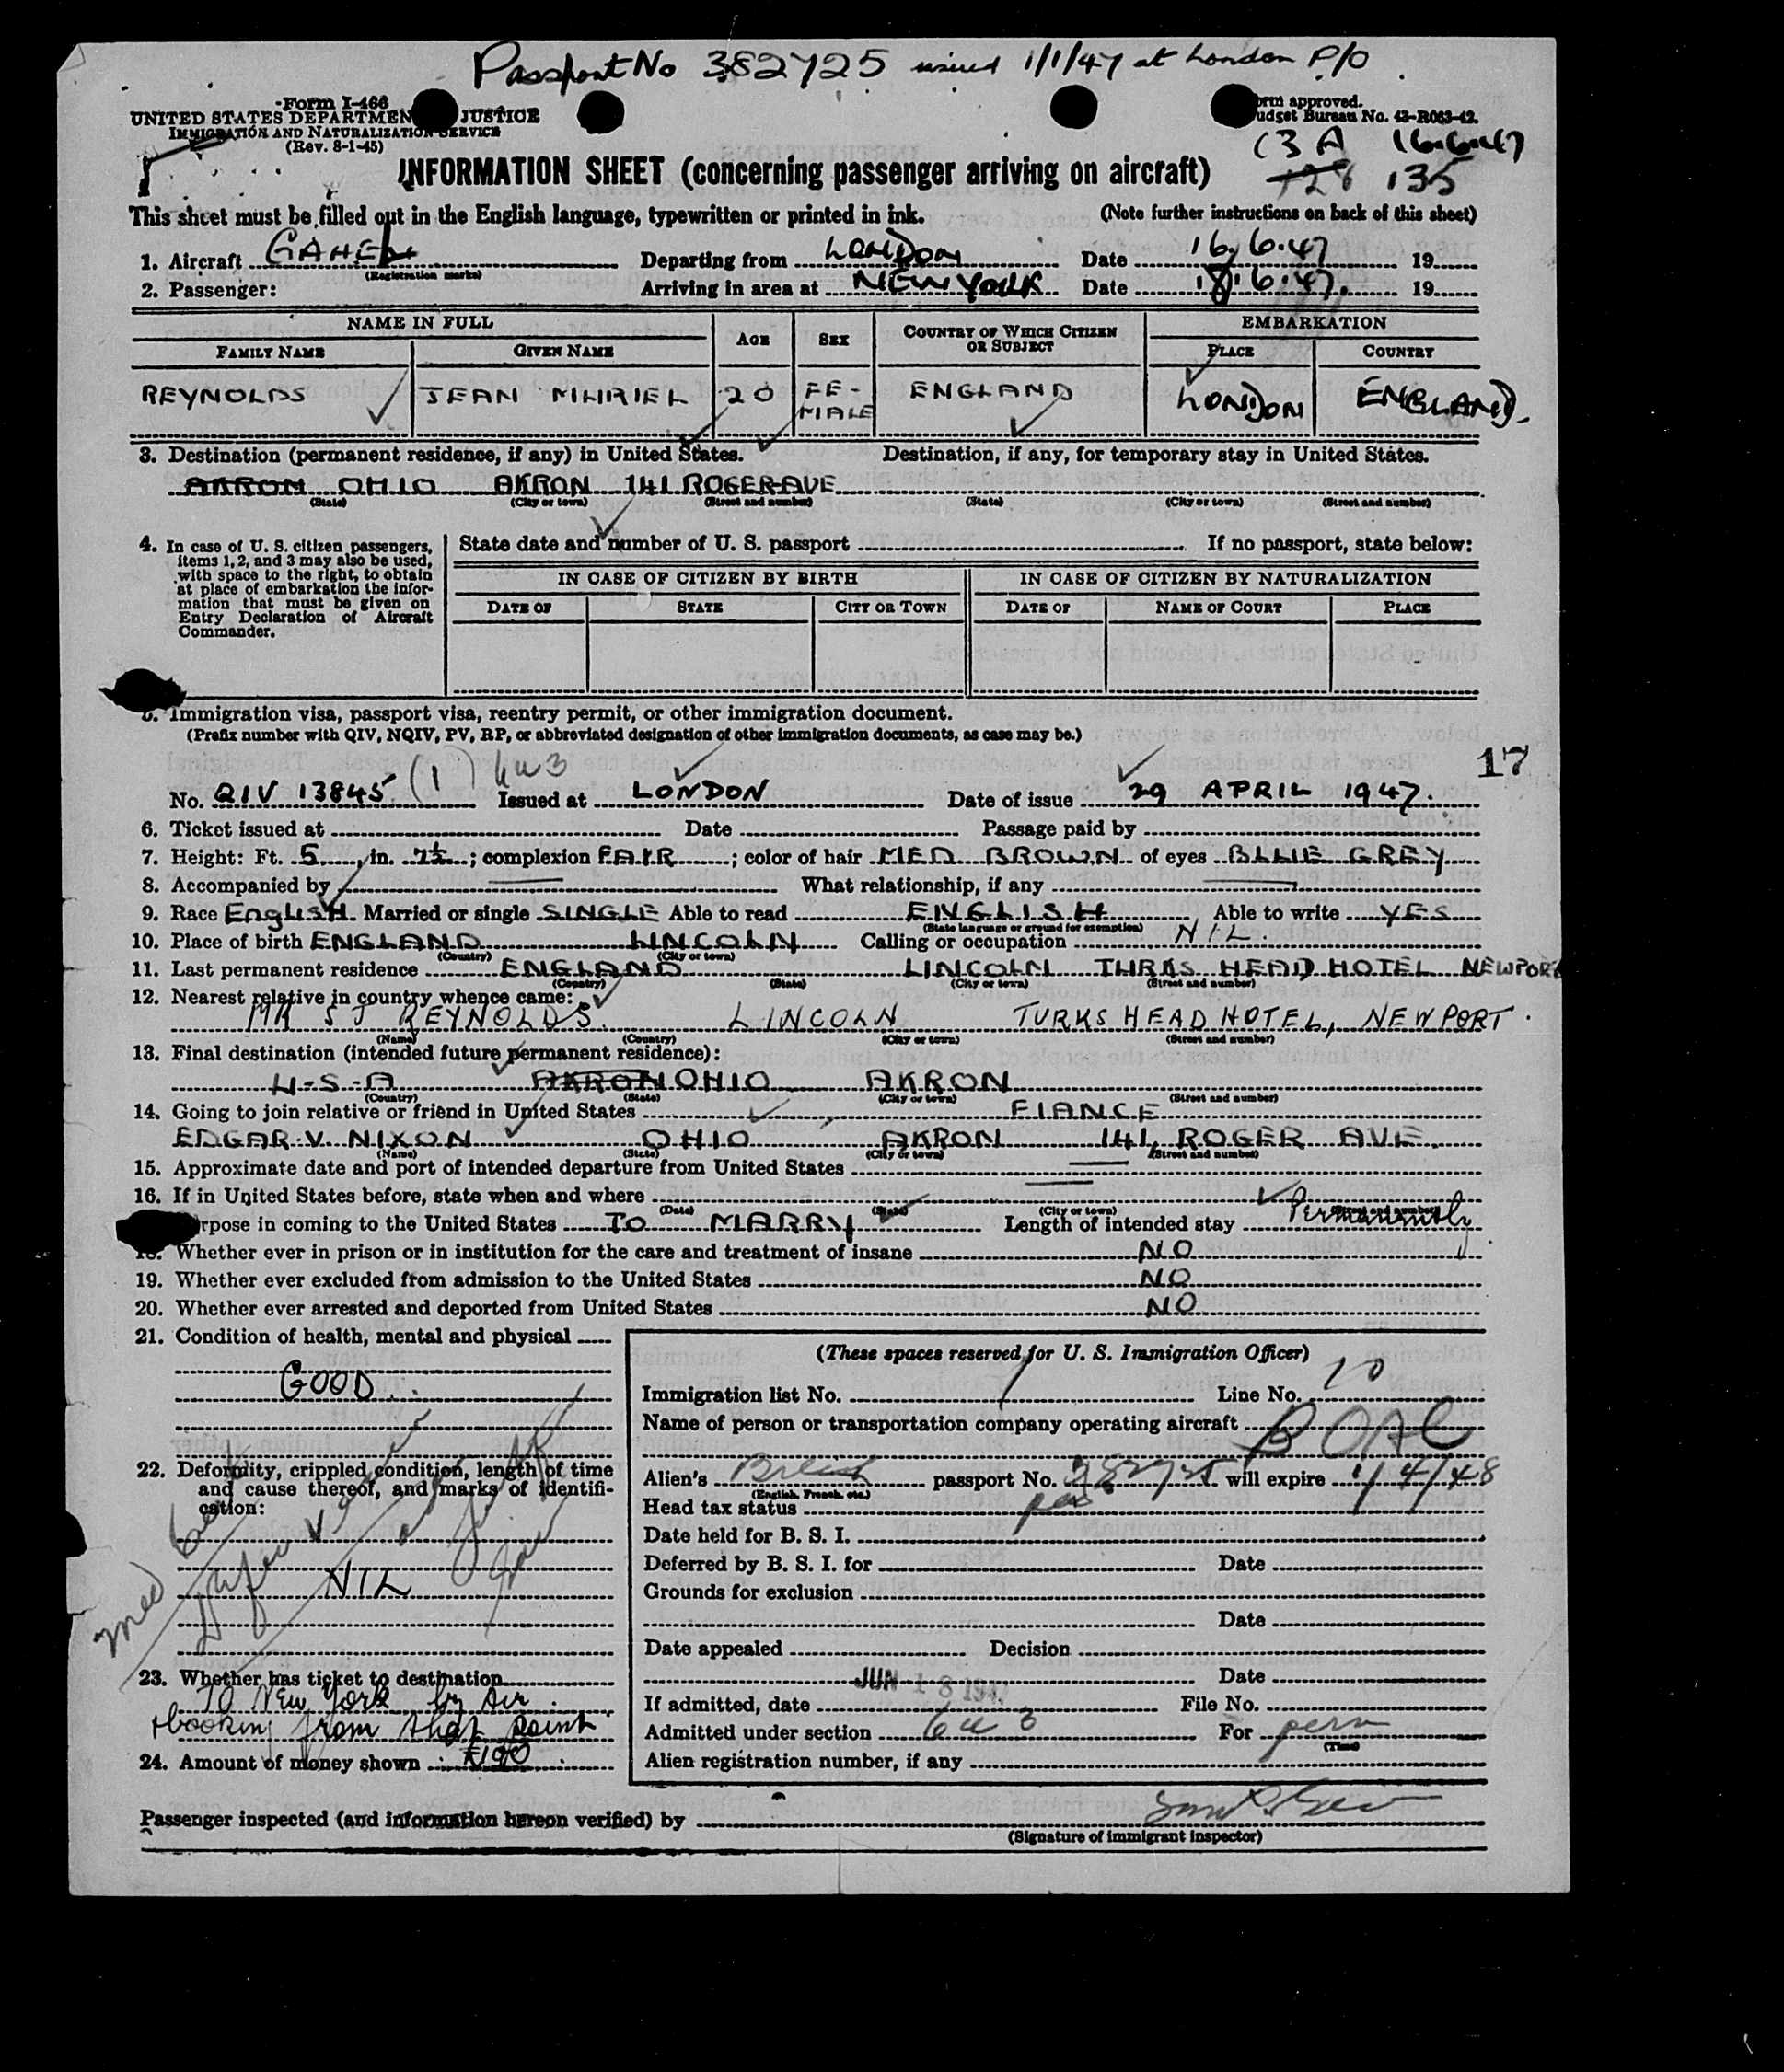 Passport No 382725 issued 1/1/47 at London P/O
Form I-466
UNITED STATES DEPARTMEN JUSTICE
IMMIGRATION AND NATURALIZATION SERVICE
(Rev. 8-1-45)
orm approved.
udget Bureau No. 43-R063-42.
13 A 16.6.47
128 135
INFORMATION SHEET (concerning passenger arriving on aircraft)
This sheet must be filled out in the English language, typewritten or printed in ink. (Note further instructions on back of this sheet)
1. Aircraft GAHEL Departing from LONDON Date 16.6.47 19
(Registration marks)
2. Passenger: Arriving in area at NEW YORK Date 18.6.47. 19
NAME IN FULL AGE SEX COUNTRY OF WHICH CITIZEN OR SUBJECT EMBARKATION
FAMILY NAME GIVEN NAME PLACE COUNTRY
REYNOLDS JEAN MURIEL 20 FE-MALE ENGLAND LONDON ENGLAND.
3. Destination (permanent residence, if any) in United States. Destination, if any, for temporary stay in United States.
AKRON OHIO AKRON 141 ROGER AVE
(State) (City or town) (Street and number) (State) (City or town) (Street and number)
4. In case of U. S. citizen passengers, items 1, 2, and 3 may also be used, with space to the right, to obtain at place of embarkation the information that must be given on Entry Declaration of Aircraft Commander.
State date and number of U. S. passport If no passport, state below:
IN CASE OF CITIZEN BY BIRTH IN CASE OF CITIZEN BY NATURALIZATION
DATE OF STATE CITY OR TOWN DATE OF NAME OF COURT PLACE
5. Immigration visa, passport visa, reentry permit, or other immigration document.
(Prefix number with QIV, NQIV, PV, RP, or abbreviated designation of other immigration documents, as case may be.)
17
No. QIV 13845 (1) Issued at LONDON Date of issue 29 APRIL 1947.
6. Ticket issued at Date Passage paid by
7. Height: Ft. 5 in. 7½ ; complexion FAIR ; color of hair MED BROWN of eyes BLUE GREY
8. Accompanied by What relationship, if any
9. Race English Married or single SINGLE Able to read ENGLISH Able to write YES
(State language or ground for exemption)
10. Place of birth ENGLAND LINCOLN Calling or occupation NIL.
(Country) (City or town)
11. Last permanent residence ENGLAND LINCOLN TURKS HEAD HOTEL NEWPORT
(Country) (State) (City or town) (Street and number)
12. Nearest relative in country whence came:
MR S J REYNOLDS. LINCOLN TURKS HEAD HOTEL, NEWPORT.
(Name) (Country) (City or town) (Street and number)
13. Final destination (intended future permanent residence):
U-S-A AKRON OHIO AKRON
(Country) (State) (City or town) (Street and number)
14. Going to join relative or friend in United States FIANCE
EDGAR V. NIXON OHIO AKRON 141, ROGER AVE.
(Name) (State) (City or town) (Street and number)
15. Approximate date and port of intended departure from United States
16. If in United States before, state when and where
(Date) (State) (City or town) (Street and number)
rpose in coming to the United States TO MARRY Length of intended stay Permanently
18. Whether ever in prison or in institution for the care and treatment of insane NO
19. Whether ever excluded from admission to the United States NO
20. Whether ever arrested and deported from United States NO
21. Condition of health, mental and physical
GOOD.
22. Deformity, crippled condition, length of time and cause thereof, and marks of identification:
NIL
23. Whether has ticket to destination
To New York by Air.
+booking from that point
24. Amount of money shown £190
(These spaces reserved for U. S. Immigration Officer)
Immigration list No. 1 Line No. 10
Name of person or transportation company operating aircraft BOAC
Alien's British passport No. 382725 will expire 1/4/48
(English, French, etc.)
Head tax status
Date held for B. S. I.
Deferred by B. S. I. for Date
Grounds for exclusion
Date
Date appealed Decision
Date
If admitted, date JUN 18 1947 File No.
Admitted under section 6 a 3 For perm
(Time)
Alien registration number, if any
Passenger inspected (and information hereon verified) by
(Signature of immigrant inspector)